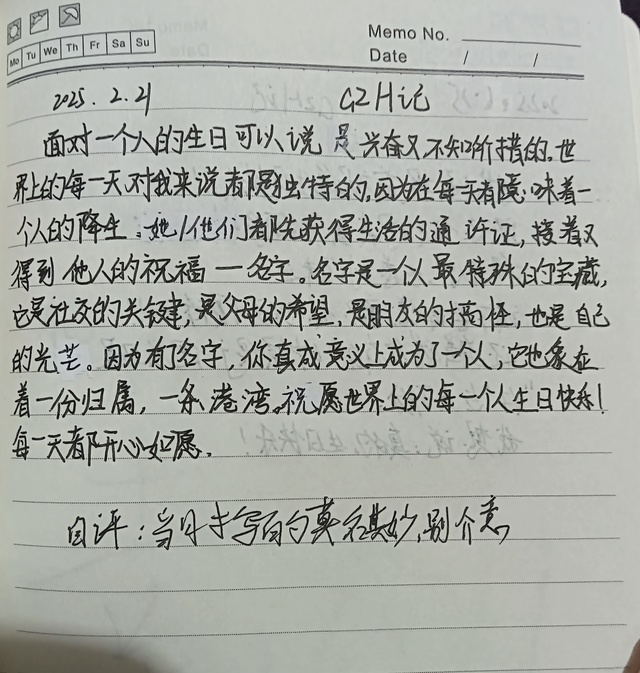 Mo Tu We Th Fr Sa Su
Memo No.
Date / /
2025.2.21 GZH记
面对一个人的生日可以说是兴奋又不知所措的。世
界上的每一天对我来说都是独特的,因为在每一天都意味着一
个人的降生。她/他们都先获得生活的通许证,接着又
得到他人的祝福一名字。名字是一个人最特殊的宝藏,
它是社交的关键,是父母的希望,是朋友的搞怪,也是自己
的光芒。因为有了名字,你真成意义上成为了一个人,它也象征
着一份归属,一条港湾。祝愿世界上的每一个人生日快乐!
每一天都开心如愿。
自评:当日手写的莫名其妙,别介意